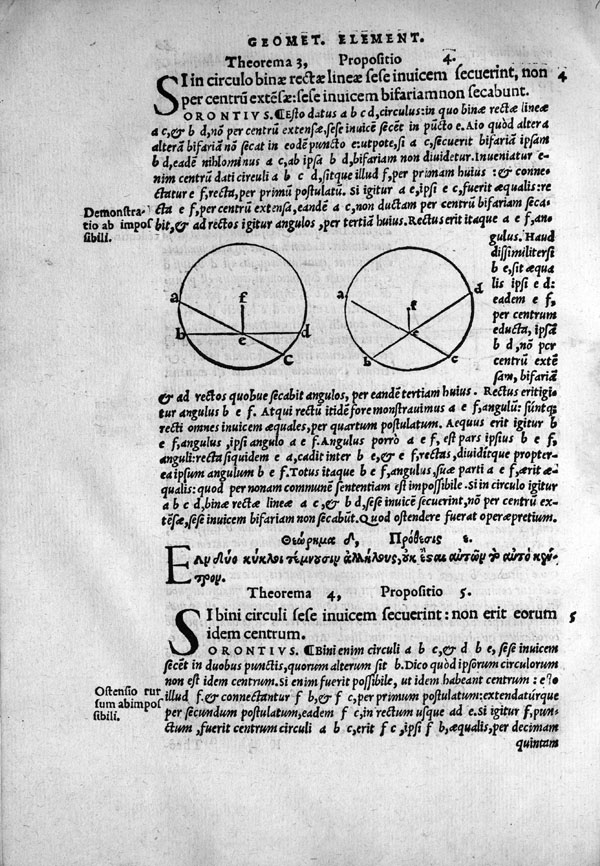 GEOMET. ELEMENT.
Theorema 3, Propositio 4.
SI in circulo binæ rectæ lineæ sese inuicem secuerint, non 4
per centrũ extẽsæ: sese inuicem bifariam non secabunt.
ORONTIVS. ¶Esto datus a b c d, circulus: in quo binæ rectæ lineæ
a c, & b d, nõ per centrũ extensæ, sese inuicẽ secẽt in pũcto e. Aio quòd altera
alterã bifariã nõ secat in eodẽ puncto e: utpote, si a c, secuerit bifariã ipsam
b d, eadẽ nihlominus a c, ab ipsa b d, bifariam non diuidetur. Inueniatur e-
nim centrũ dati circuli a b c d, sitque illud f, per primam huius : & conne-
ctatur e f, recta, per primũ postulatũ. Si igitur a e, ipsi e c, fuerit æqualis: re
Demonstra-
tio ab impos
sibili.
cta e f, per centrũ extensa, eandẽ a c, non ductam per centrũ bifariam seca-
bit, & ad rectos igitur angulos, per tertiã huius. Rectus erit itaque a e f, an-
gulus. Haud
dissimiliter si
b e, sit æqua
lis ipsi e d:
eadem e f,
per centrum
educta, ipsã
b d, nõ per
centrũ extẽ
sam, bifariã
a b c d e f
a b c d e f
& ad rectos quobue secabit angulos, per eandẽ tertiam huius. Rectus erit igi-
tur angulus b e f. Atqui rectũ itidẽ fore monstrauimus a e f, angulũ: sũntq;
recti omnes inuicem æquales, per quartum postulatum. Aequus erit igitur b
e f, angulus, ipsi angulo a e f. Angulus porrò a e f, est pars ipsius b e f,
anguli: recta siquidem e a, cadit inter b e, & e f, rectas, diuiditque propter-
ea ipsum angulum b e f. Totus itaque b e f, angulus, suæ parti a e f, ærit æ-
qualis: quod per nonam communẽ sententiam est impossibile. Si in circulo igitur
a b c d, binæ rectæ lineæ a c, & b d, sese inuicẽ secuerint, nõ per centrũ ex-
tẽsæ, sese inuicem bifariam non secabũt. Quod ostendere fuerat operæpretium.
Θεώρημα δ, Πρόθεσις ε.
Εὰν δύο κύκλοι τέμνουσιν ἀλλήλους, οὐκ ἔσται αὐτῶν τὸ αὐτὸ κέν-
τρον.
Theorema 4, Propositio 5.
SI bini circuli sese inuicem secuerint: non erit eorum 5
idem centrum.
ORONTIVS. ¶Bini enim circuli a b c, & d b e, sese inuicem
secẽt in duobus punctis, quorum alterum sit b. Dico quòd ipsorum circulorum
non est idem centrum. Si enim fuerit possibile, ut idem habeant centrum: esto
Ostensio rur
sum ab impos
sibili.
illud f. & connectantur f b, & f c, per primum postulatum: extendatúrque
per secundum postulatum, eadem f c, in rectum usque ad e. Si igitur f, pun-
ctum, fuerit centrum circuli a b c, erit f c, ipsi f b, æqualis, per decimam
quintam